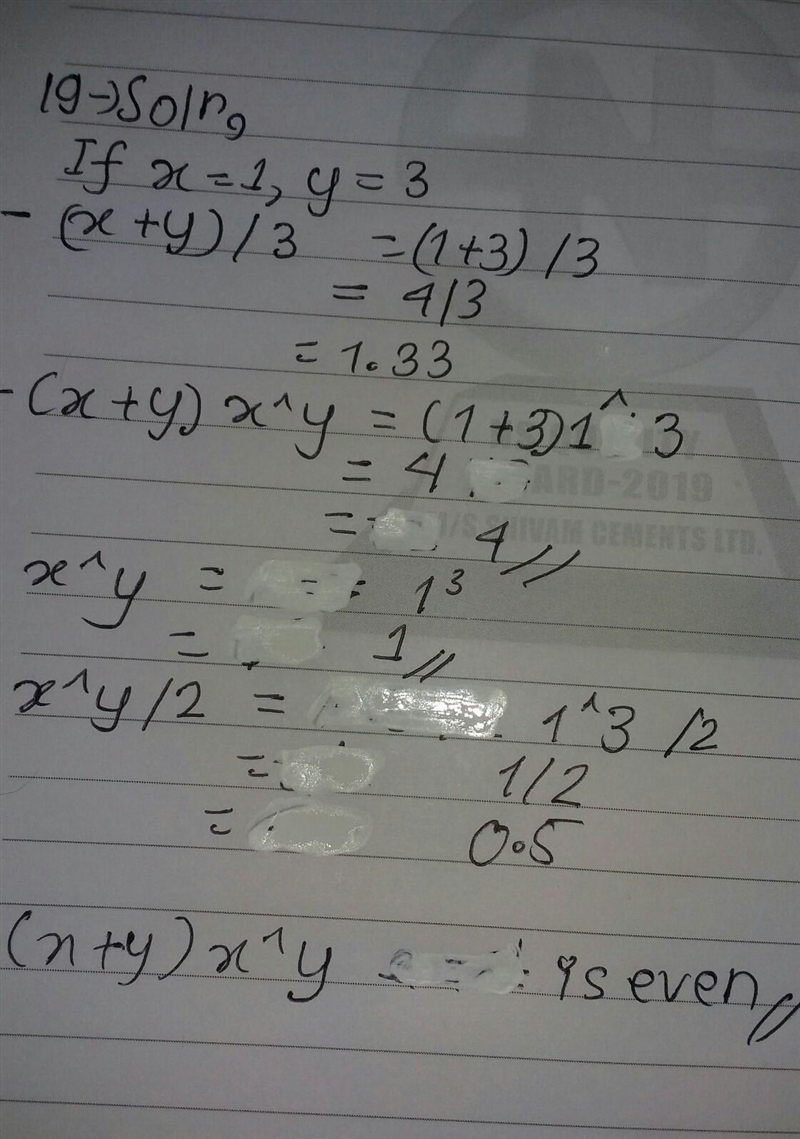 19→Soln,
If x = 1, y = 3
- (x + y) / 3 = (1+3) / 3
= 4/3
= 1.33
- (x + y) x^y = (1+3)1^3
= 4
= 4//
x^y = 1³
= 1//
x^y/2 = 1^3 /2
= 1/2
= 0.5
(x+y) x^y is even//
ARD-2019
M/S SHIVAM CEMENTS LTD.